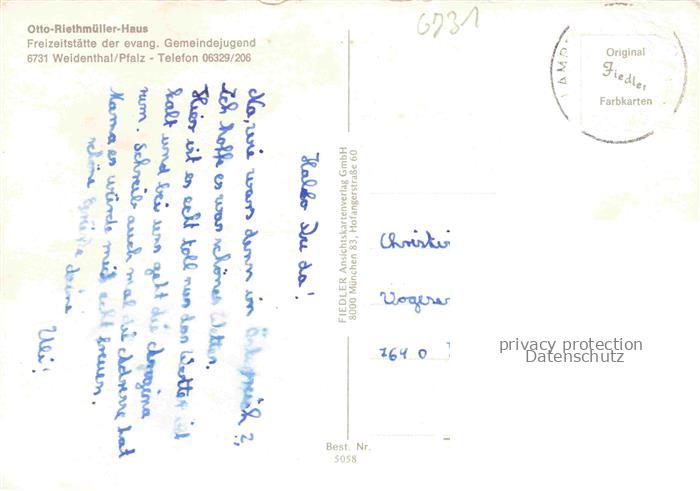 Otto-Riethmüller-Haus
Freizeitstätte der evang. Gemeindejugend
6731 Weidenthal/Pfalz - Telefon 06329/206
6731
LAMB
Original
Fiedler
Farbkarten
Hallo Du da!
Na, wie wars denn in Österreich?,
Ich hoffe es war schönes Wetter.
Hier ist es echt toll nur das Wetter ist
kalt und bei uns geht die
rum. Schreib auch mal die Adresse hat
Mama es würde mich echt freuen.
schöne Grüße deine
Uli!
FIEDLER Ansichtskartenverlag GmbH
8000 München 83, Hofangerstraße 60
Best. Nr.
5058
Christi
Vogese
7640
privacy protection
Datenschutz